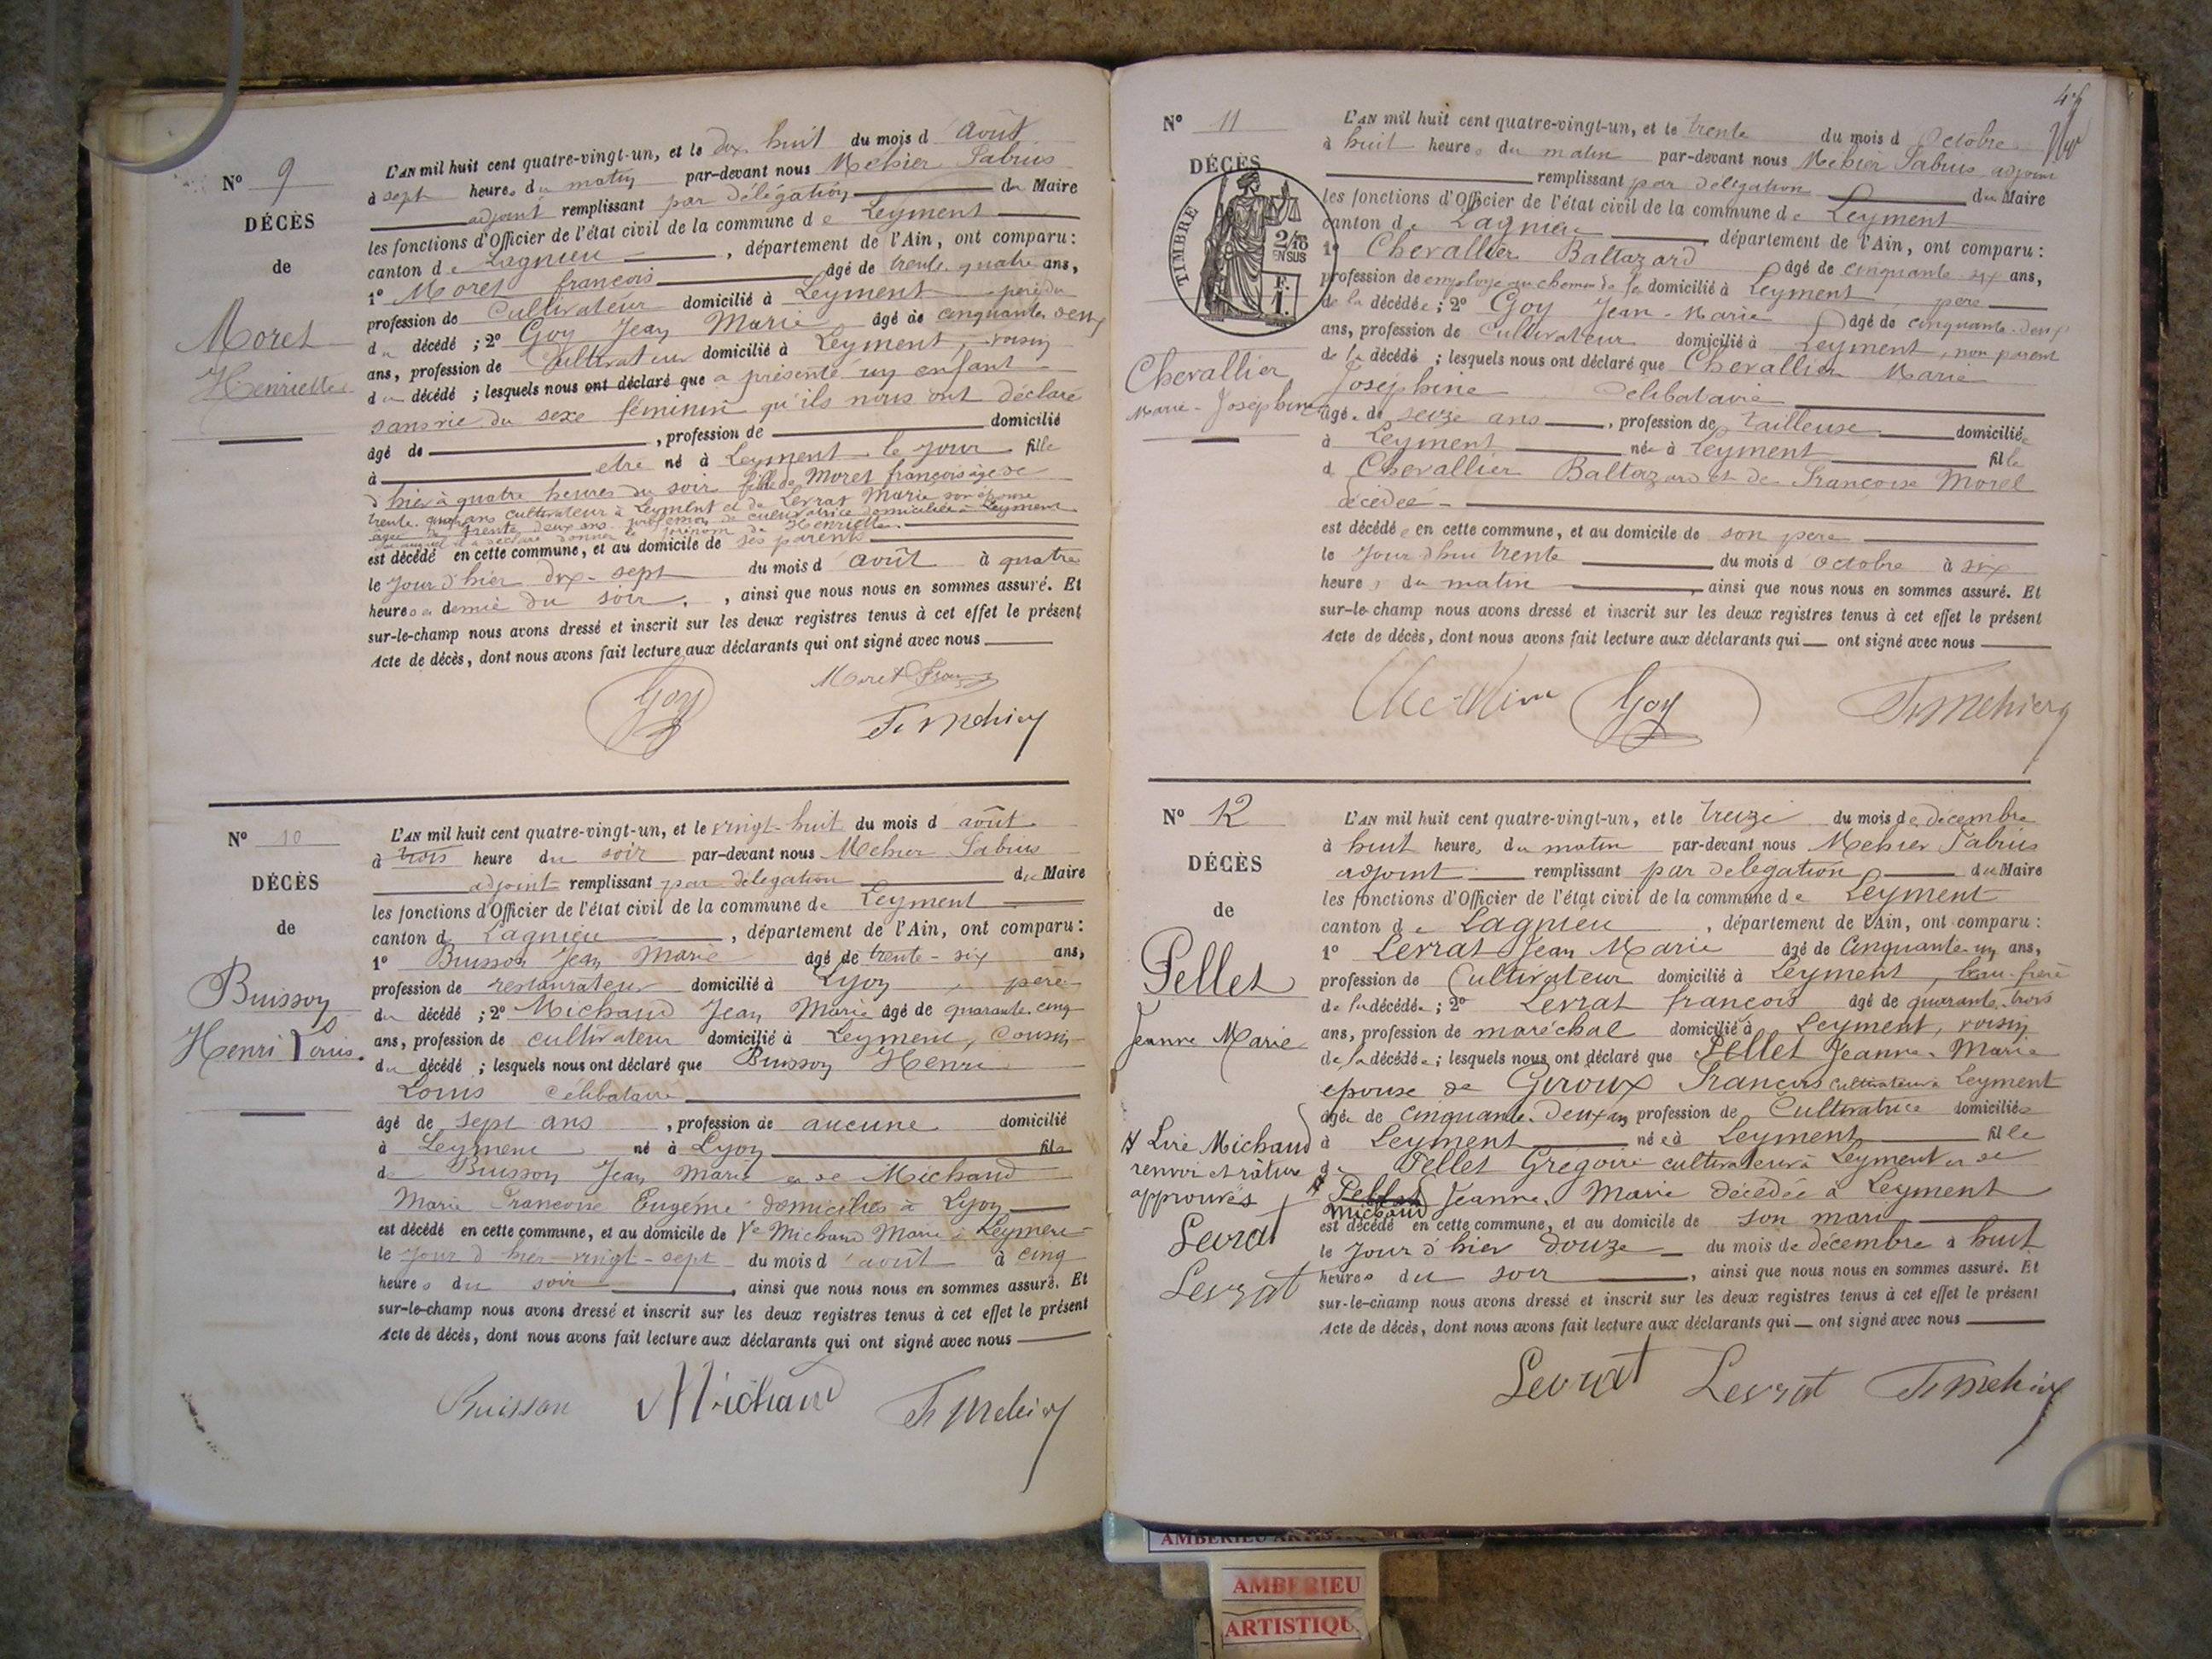 N° 9
DÉCÈS
de
Moret
Henriette
L'AN mil huit cent quatre-vingt-un, et le dix huit du mois d'Août
à sept heures du matin par-devant nous Mehier Fabius
adjoint remplissant par délégation du Maire
les fonctions d'Officier de l'état civil de la commune de Leyment
canton de Lagnieu, département de l'Ain, ont comparu:
1° Moret françois âgé de trente quatre ans,
profession de Cultivateur domicilié à Leyment père du
du décédé; 2° Goy Jean Marie âgé de cinquante deux
ans, profession de Cultivateur domicilié à Leyment, voisin
du décédé; lesquels nous ont déclaré que a présenté un enfant
sans vie du sexe féminin qu'ils nous ont déclaré
âgé de , profession de domicilié
à être né à Leyment le jour fille
d'hier à quatre heures du soir fille de Moret françois âgé de
trente quatre ans cultivateur à Leyment et de Levrat Marie son épouse
âgée de trente deux ans profession de cultivatrice domiciliée à Leyment
auquel il a déclaré donner le prénom de Henriette.
est décédé en cette commune, et au domicile de ses parents
le jour d'hier dix-sept du mois d'août à quatre
heures et demie du soir, ainsi que nous nous en sommes assuré. Et
sur-le-champ nous avons dressé et inscrit sur les deux registres tenus à cet effet le présent
Acte de décès, dont nous avons fait lecture aux déclarants qui ont signé avec nous
Moret
Goy
F. Mehier
N° 10
DÉCÈS
de
Buisson
Henri Louis.
L'AN mil huit cent quatre-vingt-un, et le vingt-huit du mois d'août
à trois heure du soir par-devant nous Mehier Fabius
adjoint remplissant par délégation du Maire
les fonctions d'Officier de l'état civil de la commune de Leyment
canton de Lagnieu, département de l'Ain, ont comparu:
1° Buisson Jean Marie âgé de trente-six ans,
profession de restaurateur domicilié à Lyon, père
du décédé; 2° Michaud Jean Marie âgé de quarante cinq
ans, profession de cultivateur domicilié à Leyment, Cousin
du décédé; lesquels nous ont déclaré que Buisson Henri
Louis célibataire
âgé de sept ans, profession de aucune domicilié
à Leyment né à Lyon fils
de Buisson Jean Marie et de Michaud
Marie Françoise Eugénie domiciliés à Lyon
est décédé en cette commune, et au domicile de Ve Michaud Marie à Leyment
le jour d'hier vingt-sept du mois d'août à cinq
heures du soir, ainsi que nous nous en sommes assuré. Et
sur-le-champ nous avons dressé et inscrit sur les deux registres tenus à cet effet le présent
Acte de décès, dont nous avons fait lecture aux déclarants qui ont signé avec nous
Buisson Michaud F. Mehier
N° 11
DÉCÈS
TIMBRE
2/10
EN SUS
F.
1.
Chevallier
Marie-Joséphine
L'AN mil huit cent quatre-vingt-un, et le trente du mois d'Octobre
à huit heures du matin par-devant nous Mehier Fabius adjoint
remplissant par délégation du Maire
les fonctions d'Officier de l'état civil de la commune de Leyment
canton de Lagnieu département de l'Ain, ont comparu:
1° Chevallier Baltazard âgé de cinquante-six ans,
profession de employé au chemin de fer domicilié à Leyment, père
de la décédée; 2° Goy Jean-Marie âgé de cinquante-deux
ans, profession de Cultivateur domicilié à Leyment, non parent
de la décédé; lesquels nous ont déclaré que Chevallier Marie
Joséphine célibataire
âgé de seize ans, profession de tailleuse domiciliée
à Leyment née à Leyment fille
d Chevallier Baltazard et de Françoise Morel
décédée
est décédée en cette commune, et au domicile de son père
le jour d'hui trente du mois d'octobre à six
heures du matin, ainsi que nous nous en sommes assuré. Et
sur-le-champ nous avons dressé et inscrit sur les deux registres tenus à cet effet le présent
Acte de décès, dont nous avons fait lecture aux déclarants qui ont signé avec nous
Goy F. Mehier
N° 12
DÉCÈS
de
Pellet
Jeanne Marie
# Lire Michaud
renvoi et rature
approuvés
Levrat
Levrat
L'AN mil huit cent quatre-vingt-un, et le treize du mois de décembre
à huit heures du matin par-devant nous Mehier Fabius
adjoint remplissant par délégation du Maire
les fonctions d'Officier de l'état civil de la commune de Leyment
canton de Lagnieu, département de l'Ain, ont comparu:
1° Levrat Jean Marie âgé de Cinquante-un ans,
profession de Cultivateur domicilié à Leyment, beau-frère
de la décédée; 2° Levrat françois âgé de quarante-trois
ans, profession de maréchal domicilié à Leyment, voisin
de la décédée; lesquels nous ont déclaré que Pellet Jeanne-Marie
épouse de Giroux François Cultivateur à Leyment
âgée de cinquante-deux ans profession de Cultivatrice domiciliée
à Leyment née à Leyment fille
de Pellet Grégoire cultivateur à Leyment et de
# Pellet Michaud Jeanne Marie décédée à Leyment
est décédé en cette commune, et au domicile de son mari
le jour d'hier douze du mois de décembre à huit
heures du soir, ainsi que nous nous en sommes assuré. Et
sur-le-champ nous avons dressé et inscrit sur les deux registres tenus à cet effet le présent
Acte de décès, dont nous avons fait lecture aux déclarants qui ont signé avec nous
Levrat Levrat F. Mehier
AMBERIEU
ARTISTIQU